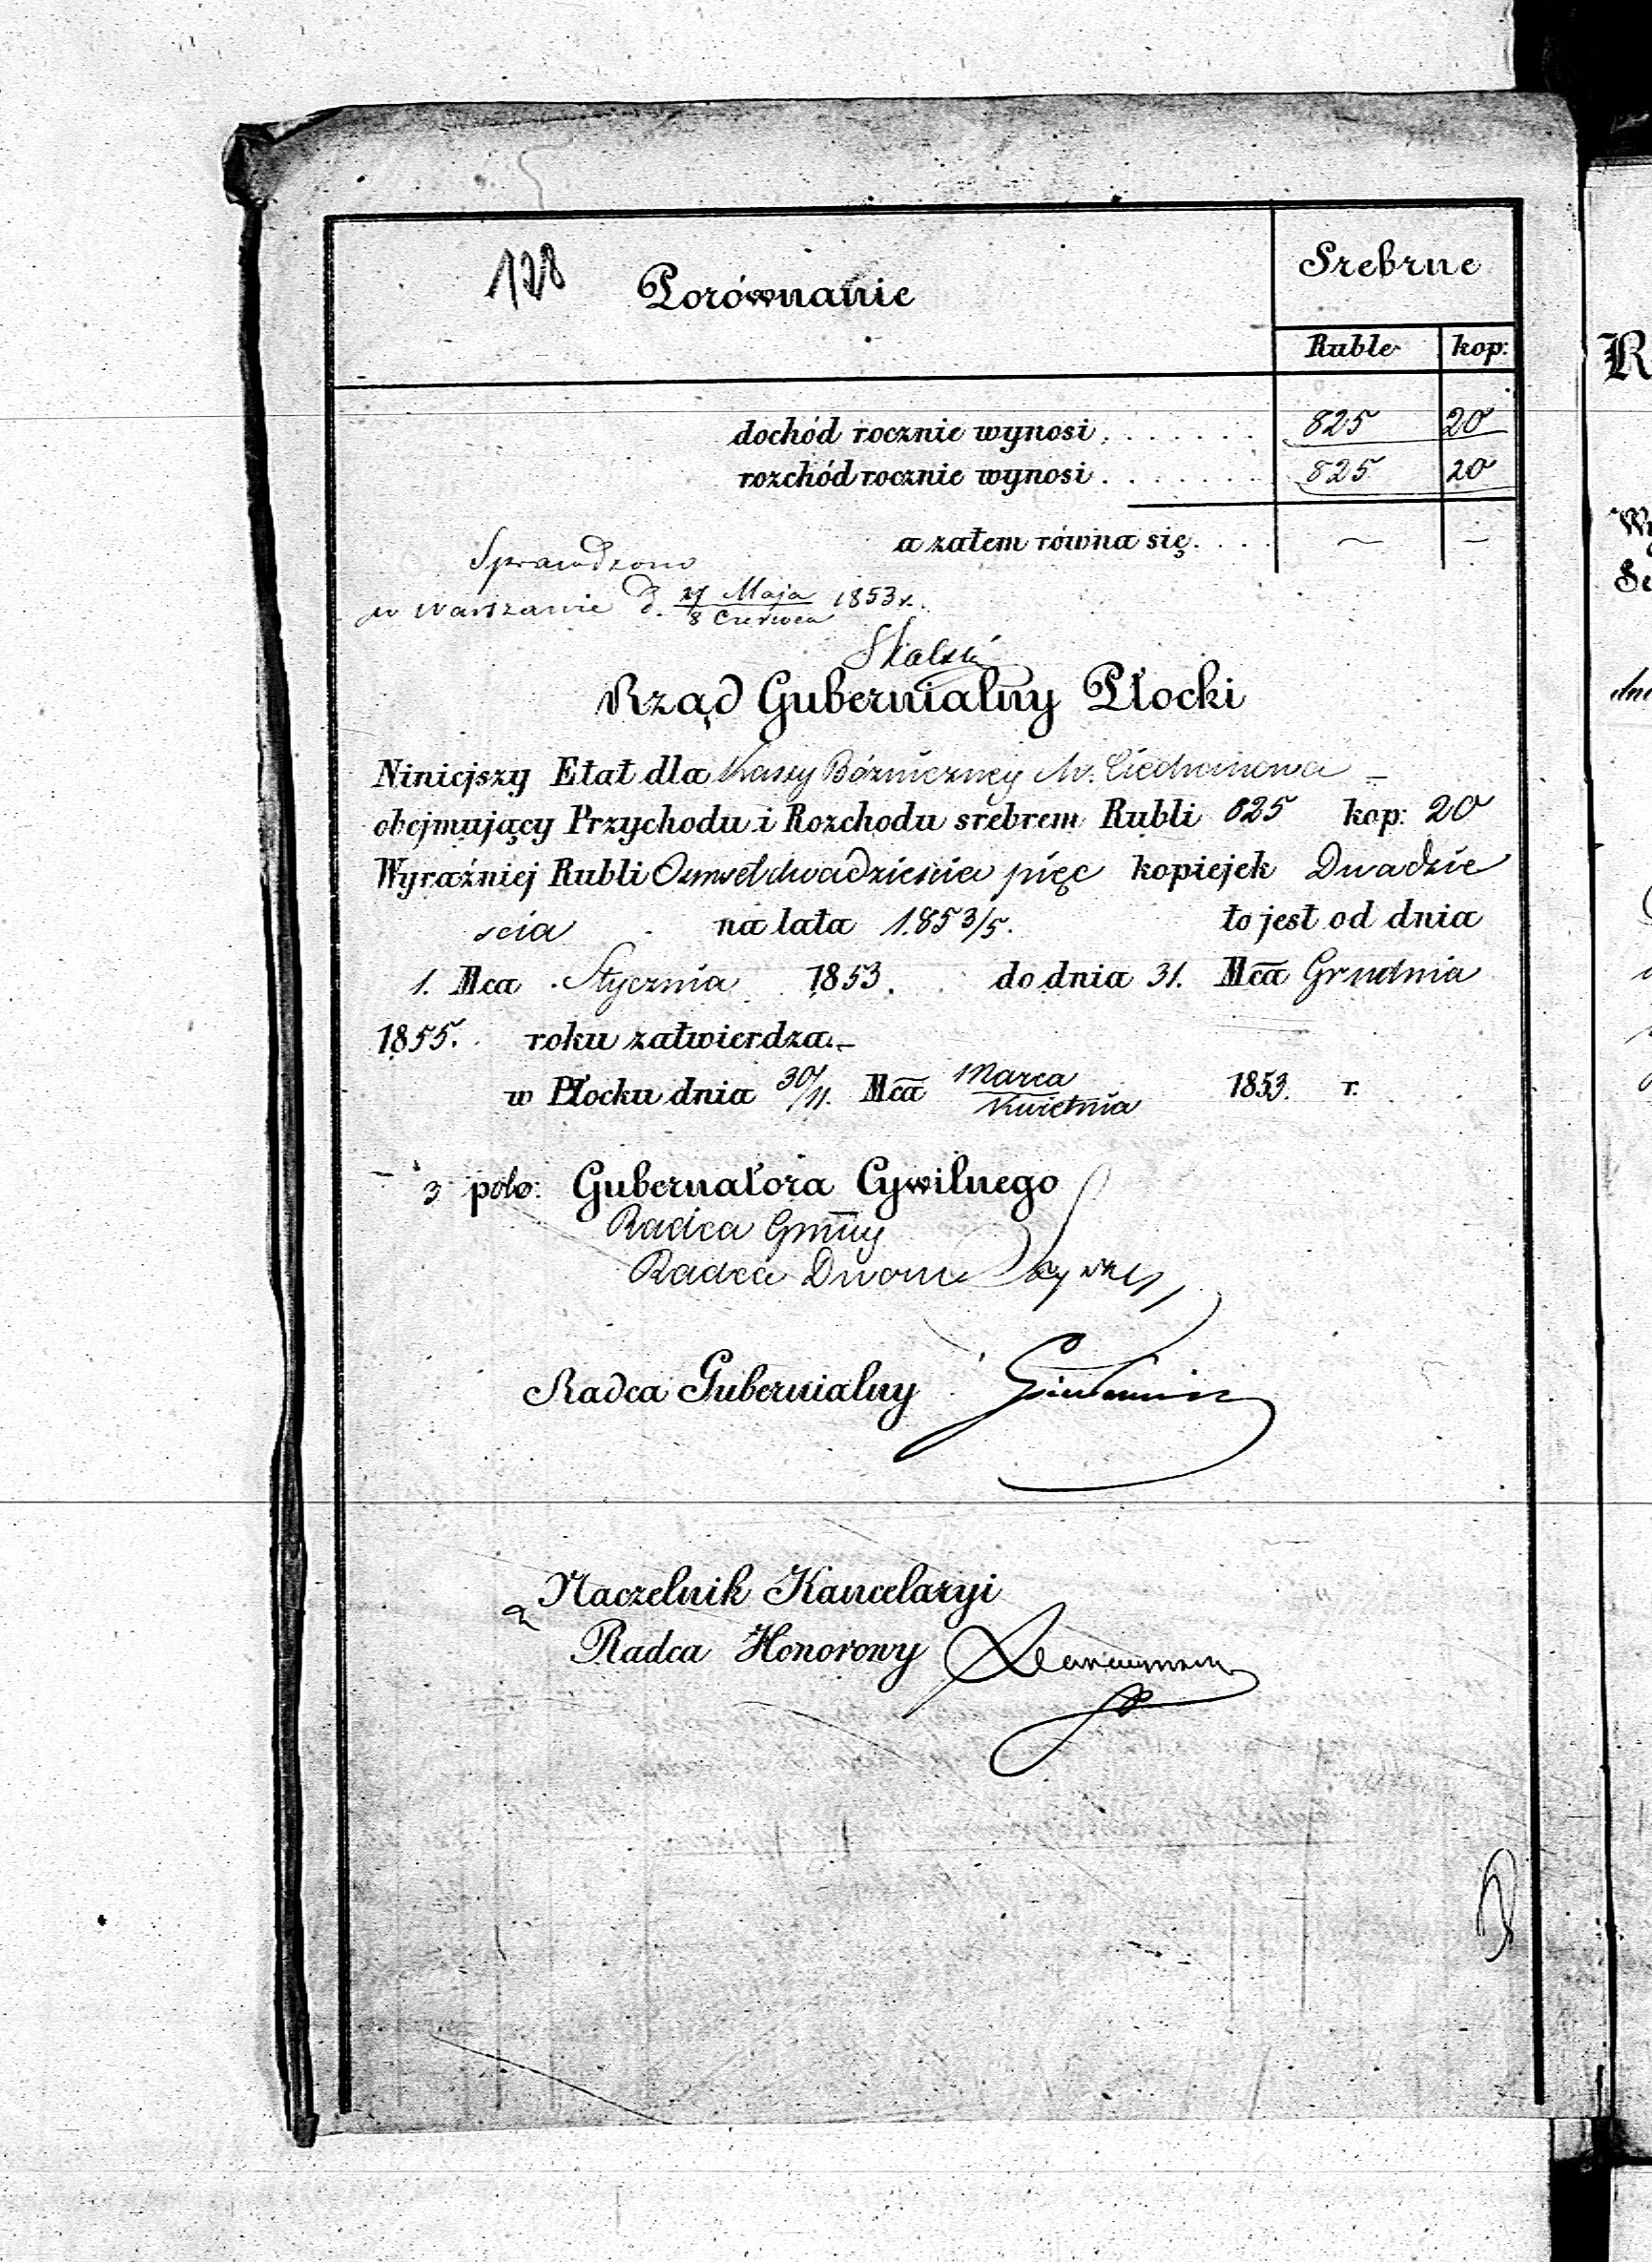 128 Porównanie
Srebrne
Ruble kop:
dochód rocznie wynosi . . . . . . . 825 20
rozchód rocznie wynosi . . . . . . . 825 20
a zatem równa się. . . . — —
Sprawdzono
w Warszawie d. 27 Maja / 8 Czerwca 1853 r.
Skalski
Rząd Gubernialny Płocki
Niniejszy Etat dla Kassy Bózniczney M. Ciechanowa —
obejmujący Przychodu i Rozchodu srebrem Rubli 825 kop: 20
Wyraźniej Rubli Ośmset dwadzieścia pięć kopiejek Dwadzie
ścia na lata 1853/5. to jest od dnia
1. Mca Stycznia 1853. do dnia 31. Mca Grudnia
1855. roku zatwierdza.—
w Płocku dnia 30/11. Mca Marca / Kwietnia 1853. r.
z polo: Gubernatora Cywilnego
Radca
Radca Dworu
Radca Gubernialny
Naczelnik Kancelaryi
Radca Honorowy
R
Wy
Se
dni